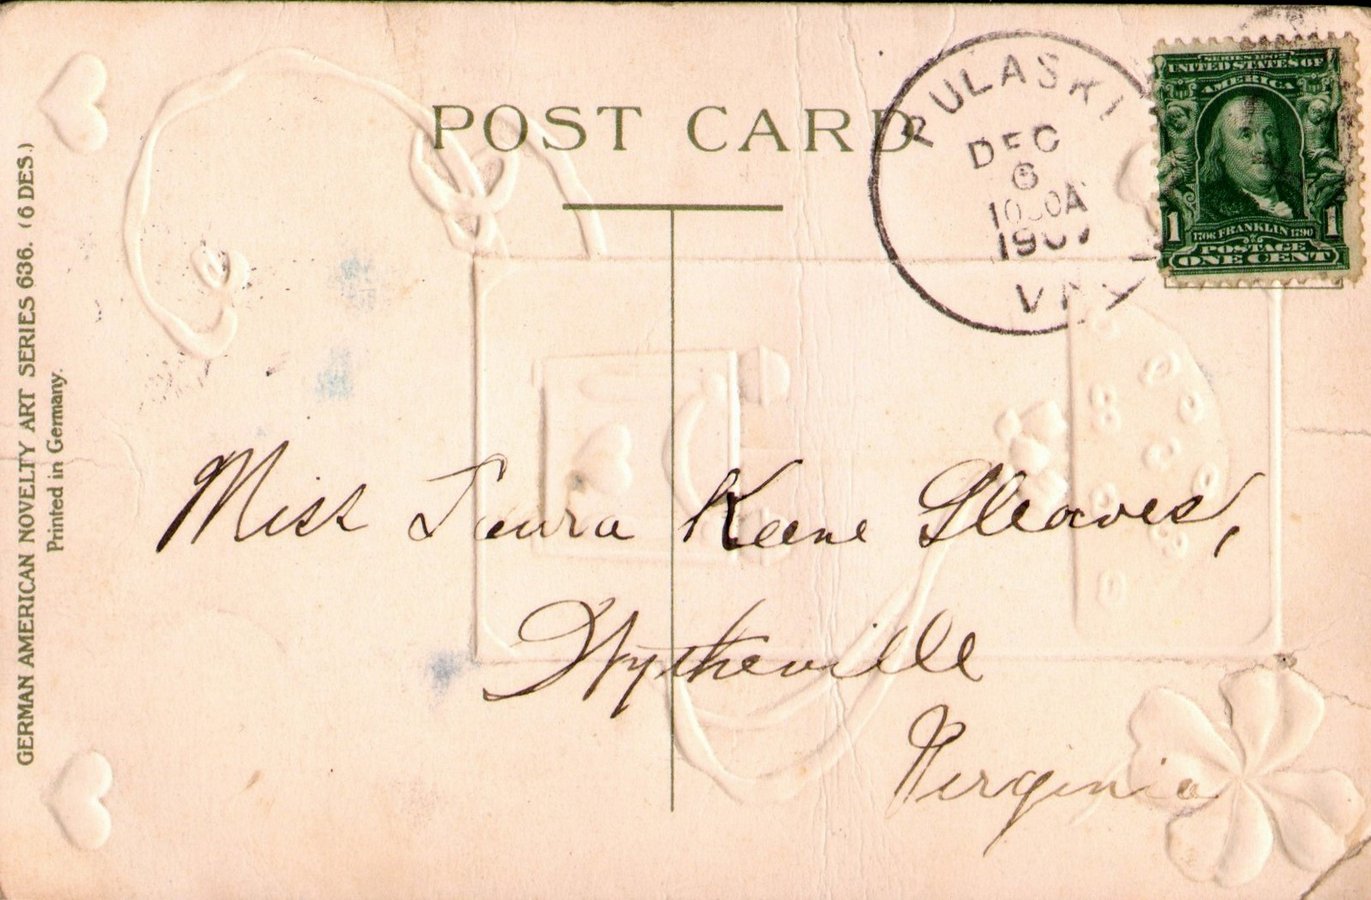 POST CARD
PULASKI
DEC
6
1907
VA
SERIES 1902
UNITED STATES OF
AMERICA
1 1706 FRANKLIN 1790 1
POSTAGE
ONE CENT
GERMAN AMERICAN NOVELTY ART SERIES 636. (6 DES.)
Printed in Germany.
Miss Laura Keene Gleaves,
Wytheville
Virginia